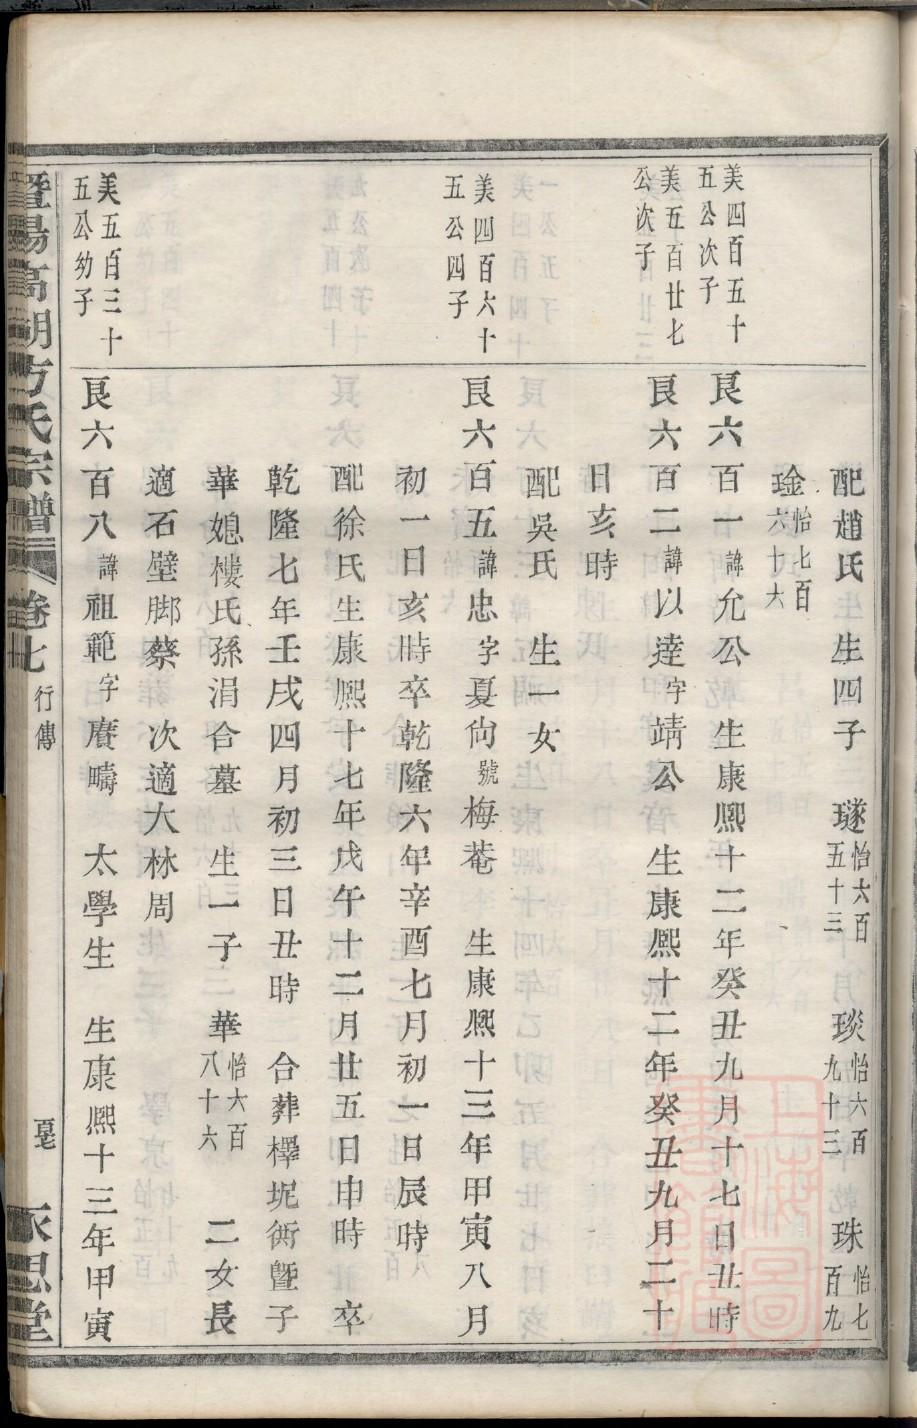 配趙氏 生四子 璲怡六百五十三 琰怡六百九十三 珠怡七百九
琻怡七百六十六
美四百五十五公次子
艮六百一諱允公 生康熙十二年癸丑九月十七日丑時
美五百廿七公次子
艮六百二諱以達字靖公 生康熙十二年癸丑九月二十
日亥時
配吳氏 生一女
美四百六十五公四子
艮六百五諱忠字夏尙號梅菴 生康熙十三年甲寅八月
初一日亥時卒乾隆六年辛酉七月初一日辰時
配徐氏生康熙十七年戊午十二月廿五日申時 卒
乾隆七年壬戌四月初三日丑時 合葬檡坭衖曁子
華媳樓氏孫涓合墓 生一子 華怡六百八十六 二女長
適石壁脚蔡 次適大林周
美五百三十五公幼子
艮六百八諱祖範字賡疇 太學生 生康熙十三年甲寅
暨陽高湖方氏宗譜 卷七 行傳 永思堂